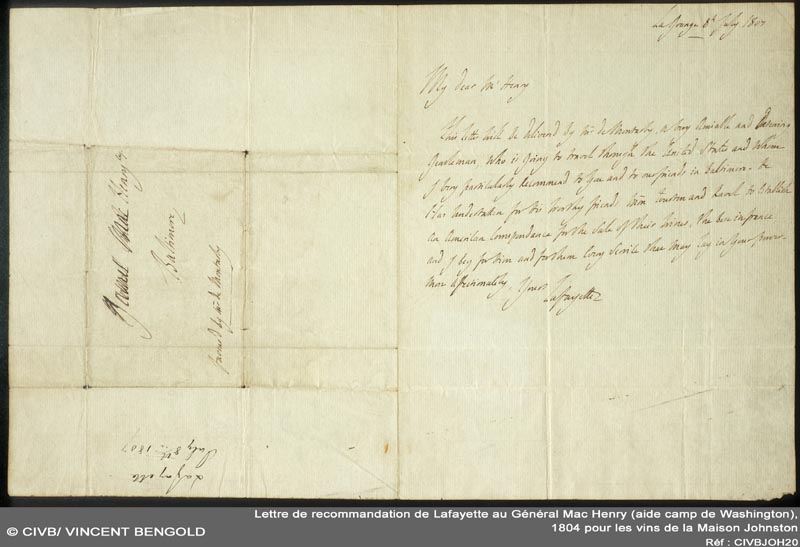 La Grange 8th July 180
My dear Mc Henry
This letter will be delivered by Mr de Montarby, a very amiable and Deserving
Gentleman, Who is going to travel through the United States and Whom
I very particularly Recommend to You and to our friends in Baltimore. He
Has Undertaken for His Worthy friend to Establish
An American Correspondance for the Sale of their Wines, the best in france
and I beg for Him and for them Every Service that May Lay in Your power.
Most affectionately, Yours
Lafayette
James Henry
Baltimore
favored by Mr de Montarby
Lafayette
July 8th 1807
Lettre de recommandation de Lafayette au Général Mac Henry (aide camp de Washington),
1804 pour les vins de la Maison Johnston
© CIVB/ VINCENT BENGOLD
Réf : CIVBJOH20